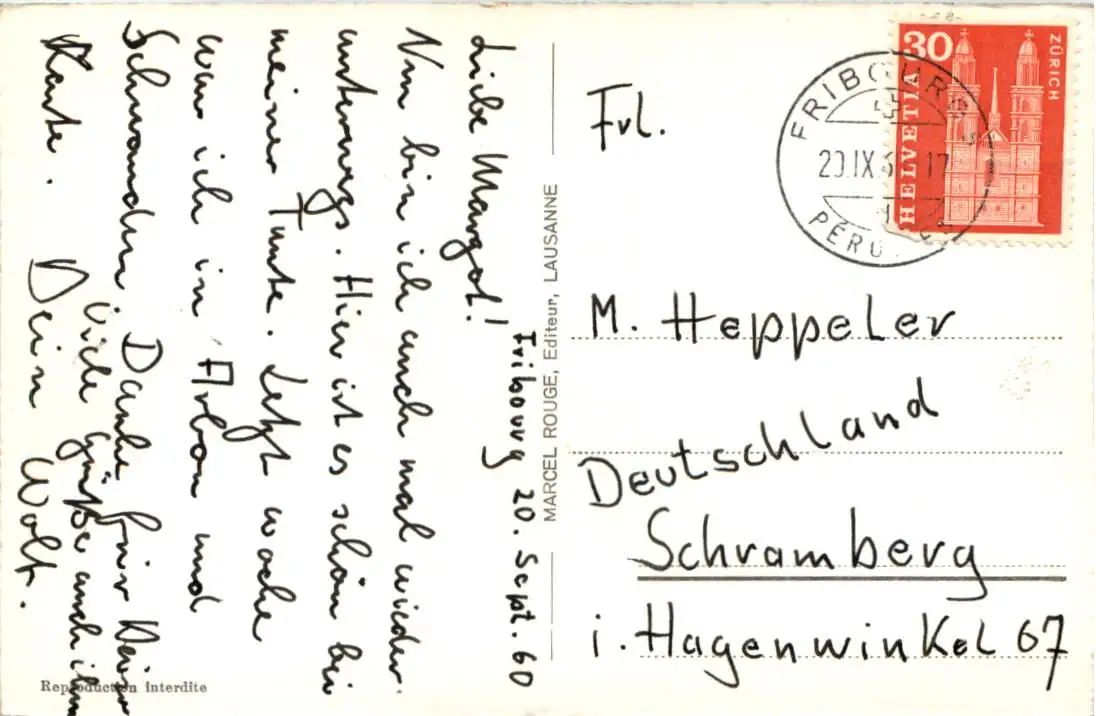 Fribourg 20. Sept. 60
Liebe Margot!
Nun bin ich auch mal wieder
unterwegs. Hier ist es schön bei
meiner Tante. Letzt woche
war ich in Arbon und
Schwanden. Danke für Deine
Karte. Viele Grüße auch ihm
Dein Wolf.
MARCEL ROUGE, Editeur, LAUSANNE
Reproduction interdite
Frl.
M. Heppeler
Deutschland
Schramberg
i. Hagenwinkel 67
30
ZÜRICH
HELVETIA
FRIBOURG
20.IX. 17